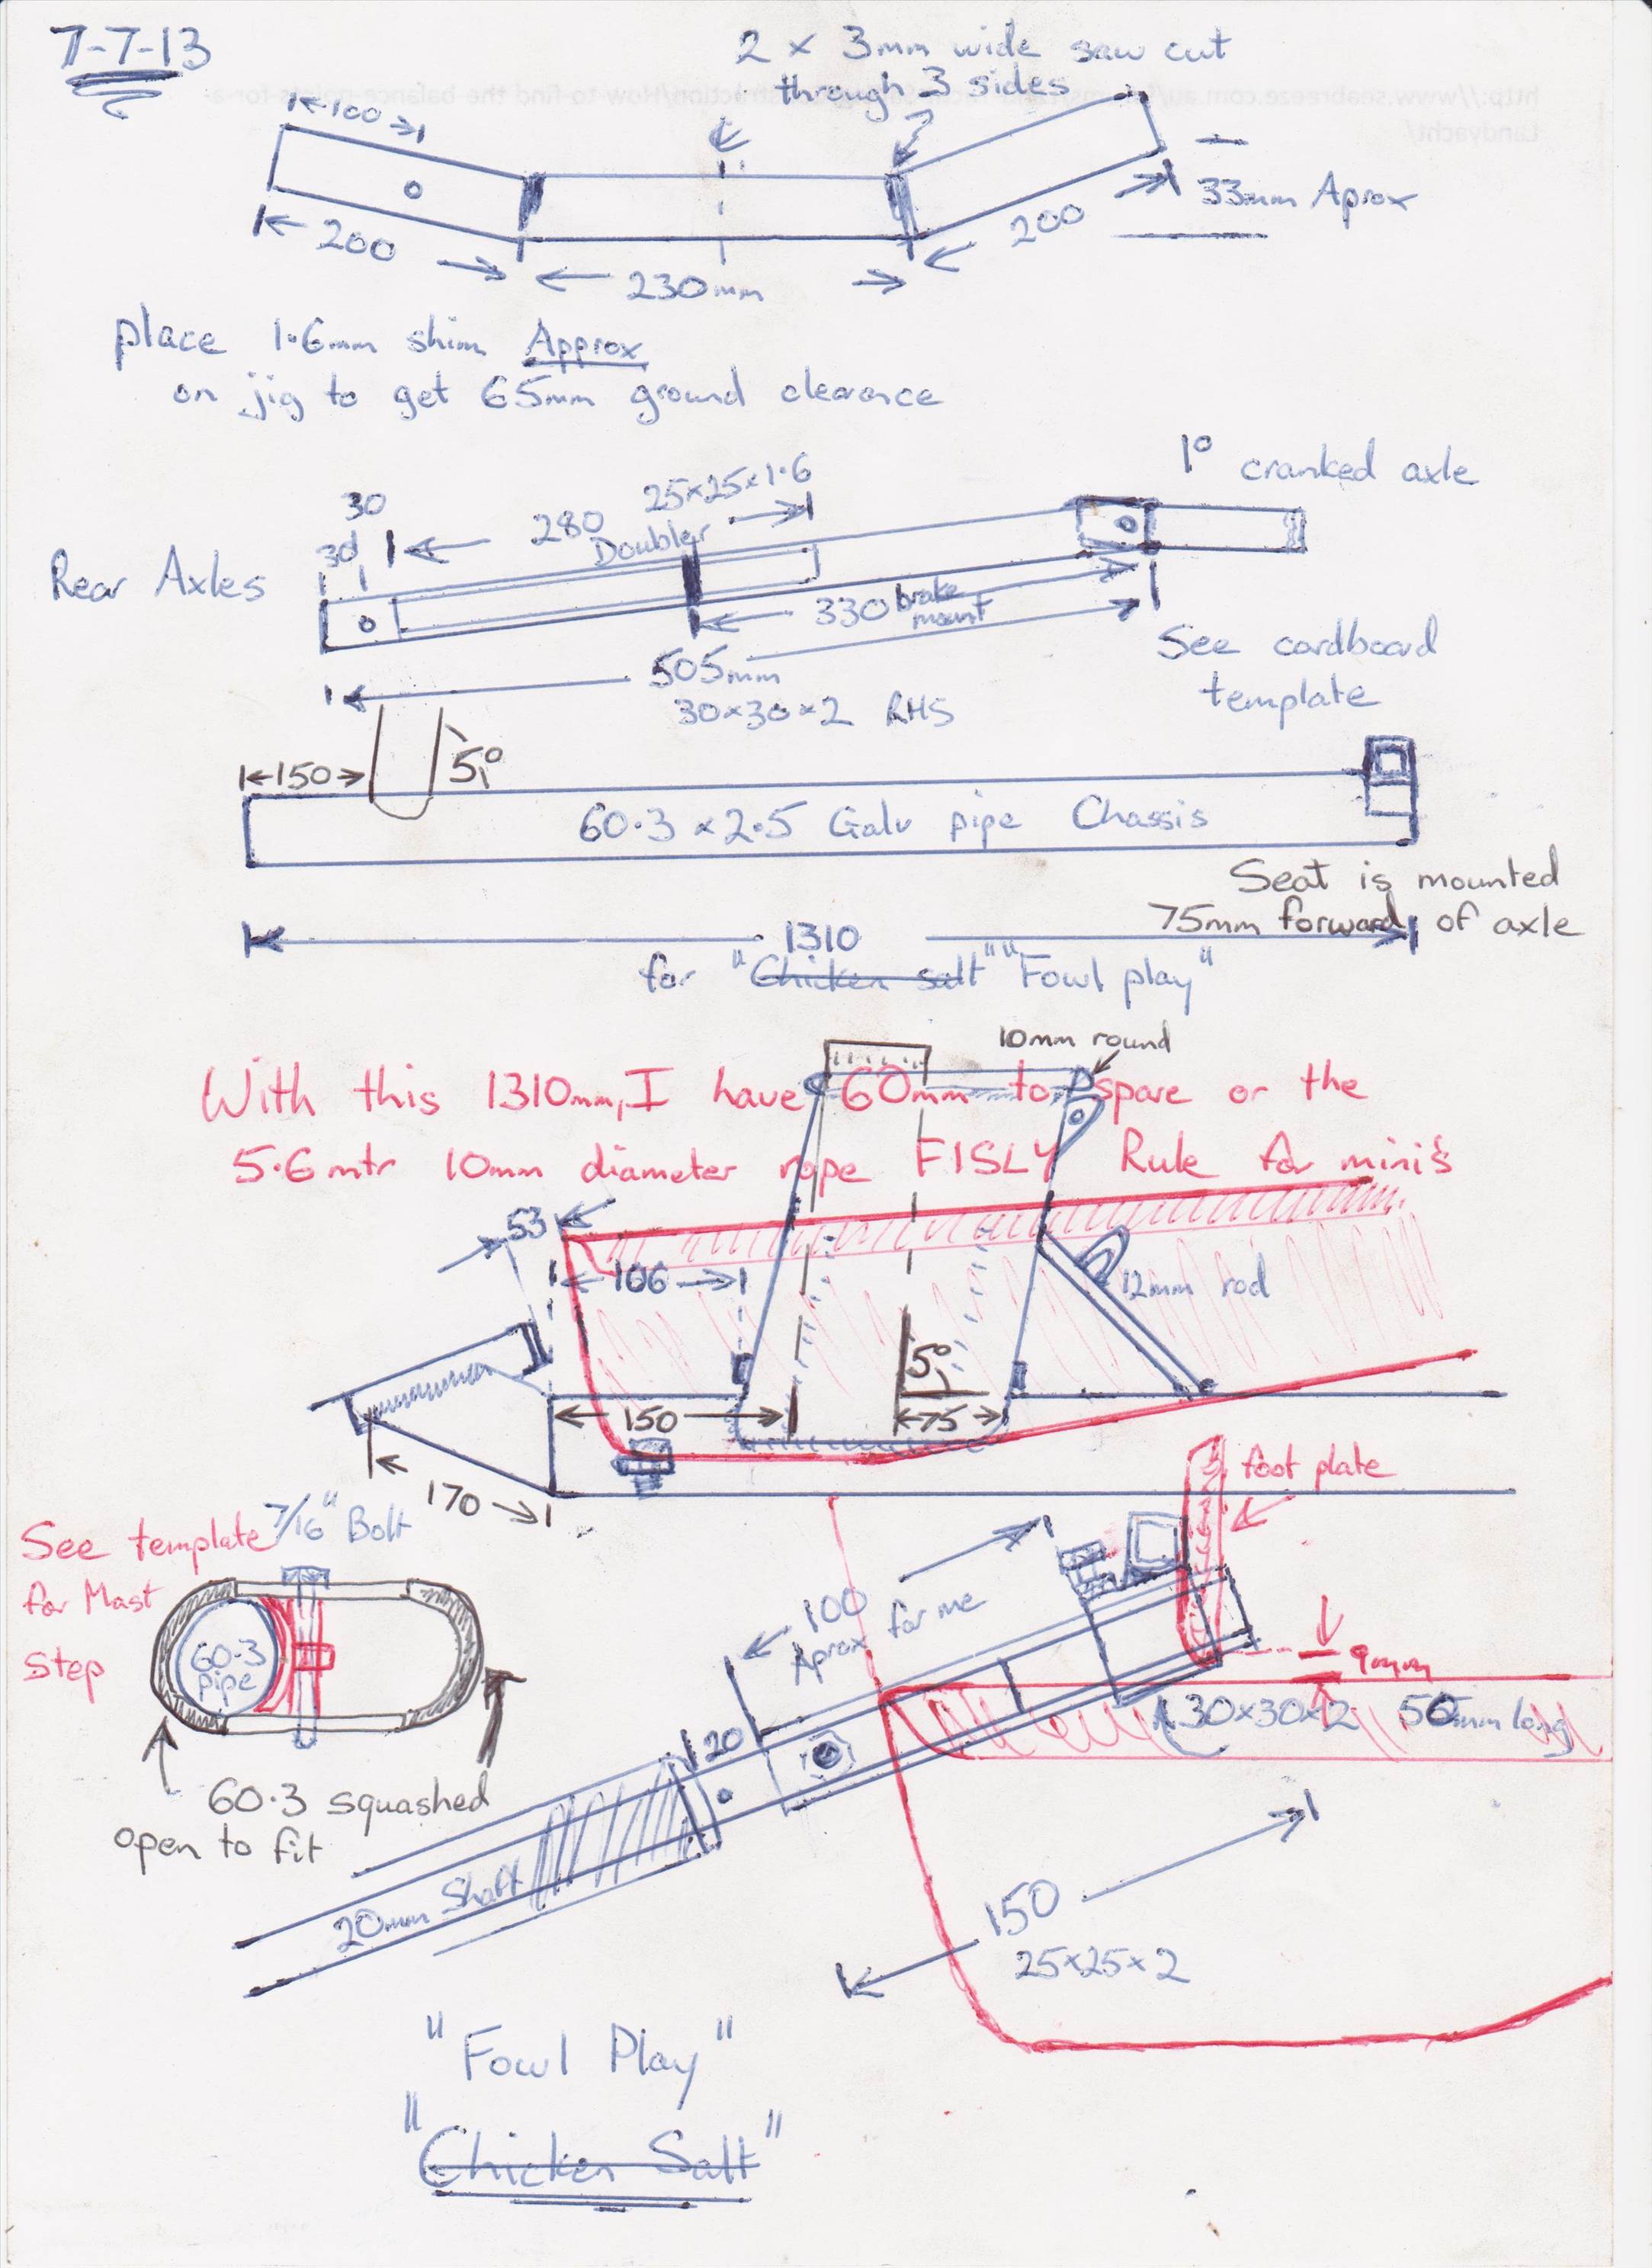 7-7-13
2 x 3mm wide saw cut
through 3 sides
100
33mm Aprox
200
200
230mm
place 1.6mm shim Approx
on jig to get 65mm ground clearance
1° cranked axle
25x25x1.6
30
280
Doubler
30
Rear Axles
330 brake
mount
See cardboard
template
505mm
30x30x2 RHS
150
5°
60.3 x 2.5 Galv pipe Chassis
Seat is mounted
75mm forward of axle
1310
for "Chicken salt" "Fowl play"
10mm round
With this 1310mm, I have 60mm to spare or the
5.6mtr 10mm diameter rope FISLY Rule for mini's
53
106
12mm rod
5°
150
75
170
foot plate
7/16" Bolt
See template
for Mast
Step
100
Aprox for me
9mm
60.3
pipe
30x30x2 50mm long
120
60.3 squashed
open to fit
20mm Shaft
150
25x25x2
"Fowl Play"
"Chicken Salt"